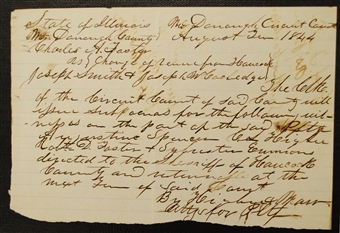 State of Illinois McDonough Circuit Court
McDonough County August Term 1844
Charles A. Foster
vs Change of venue from Hancock
Joseph Smith & Joseph W. Coolidge
The Clk
of the Circuit Court of said County will
issue subpoenas for the following wit-
nesses on the part of the
Foster & Sylvester Emmons
directed to the Sheriff of Hancock
County and returnable at the
next Term of said Court
By
Attys for Plff